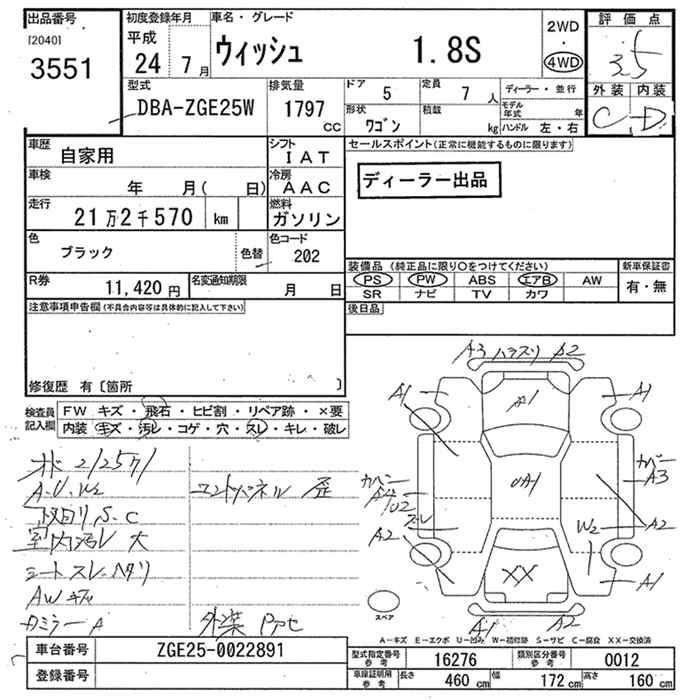 出品番号
[2040]
3551
初度登録年月
平成
24 7月
車名・グレード
ウィッシュ 1.8S
2WD
・
4WD
評価点
3.5
外装 内装
C D
型式
DBA-ZGE25W
排気量
1797
CC
ドア 5
定員 7 人
形状 ワゴン
積載 kg
ディーラー・並行
モデル年式 年
ハンドル 左・右
車歴
自家用
シフト
IAT
車検
年 月( 日)
冷房
AAC
走行
21万2千570 km
燃料
ガソリン
色
ブラック
色替
色コード
202
R券
11,420円
名変通知期限
月 日
セールスポイント(正常に機能するものに限ります)
ディーラー出品
装備品(純正品に限り〇をつけてください)
PS PW ABS エアB AW
SR ナビ TV カワ
新車保証書
有・無
後日品
注意事項申告欄(不具合内容等は具体的に記入して下さい)
修復歴 有〔箇所 〕
検査員記入欄
FW キズ・飛石・ヒビ割・リペア跡・×要
内装 キズ・汚レ・コゲ・穴・スレ・キレ・破レ
A・U・W2
下回りS・C
室内汚レ大
シートスレ・ヘタリ
AWキズ
コアパネル歪
外装
A3 A2
A1 A1
A1
A1
カバー A3
A2 A2
W2
A1
XX
A1 A2
スペア
A-キズ E-エクボ U-凹み W-補修跡 S-サビ C-腐食 XX-交換済
車台番号 ZGE25-0022891
登録番号
型式指定番号参考 16276
類別区分番号参考 0012
車庫証明用参考
長さ 460 cm
幅 172 cm
高さ 160 cm